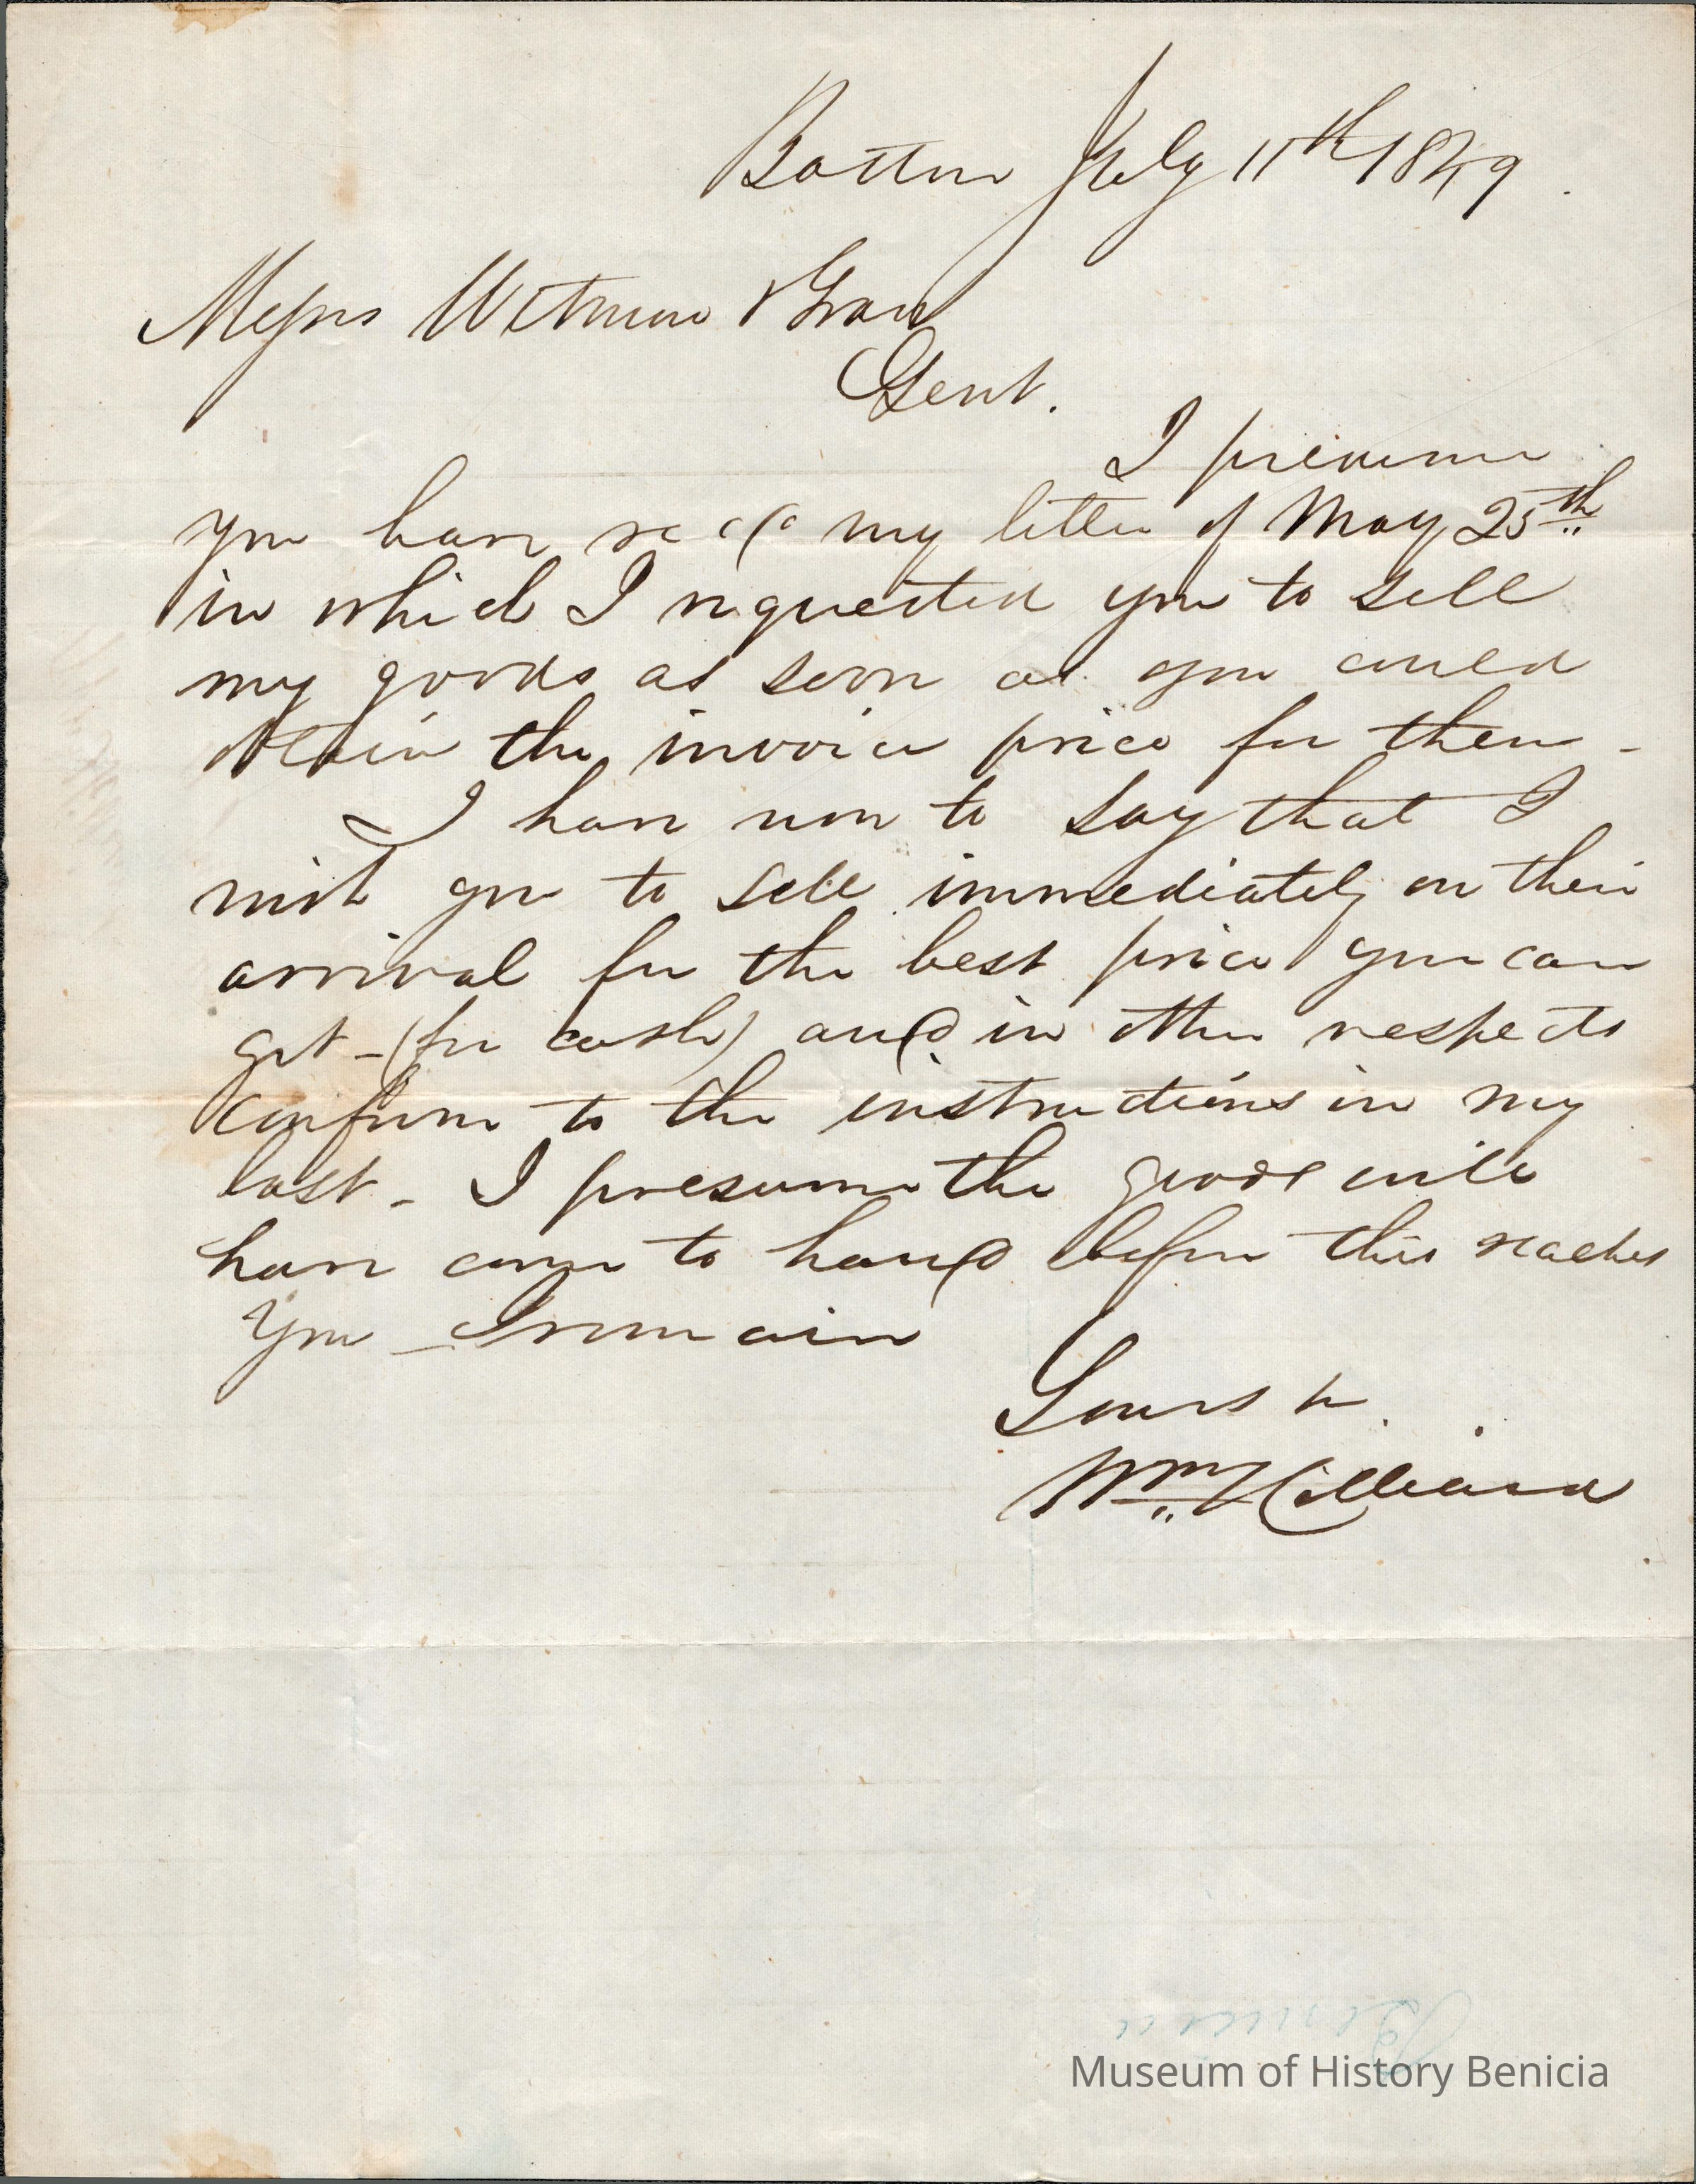 Boston July 11th 1849.
Messrs Wetmore & Gran
Gent.
I presume
you have recd my letter of May 25th
in which I requested you to sell
my goods as soon as you could
obtain the invoice price for them -
I have now to say that I
wish you to sell immediately on their
arrival for the best price you can
get - (for cash) and in other respects
conform to the instructions in my
last - I presume the goods will
have come to hand before this reaches
you - I remain
Yours tr
Wm Hilliard
Benicia
Museum of History Benicia